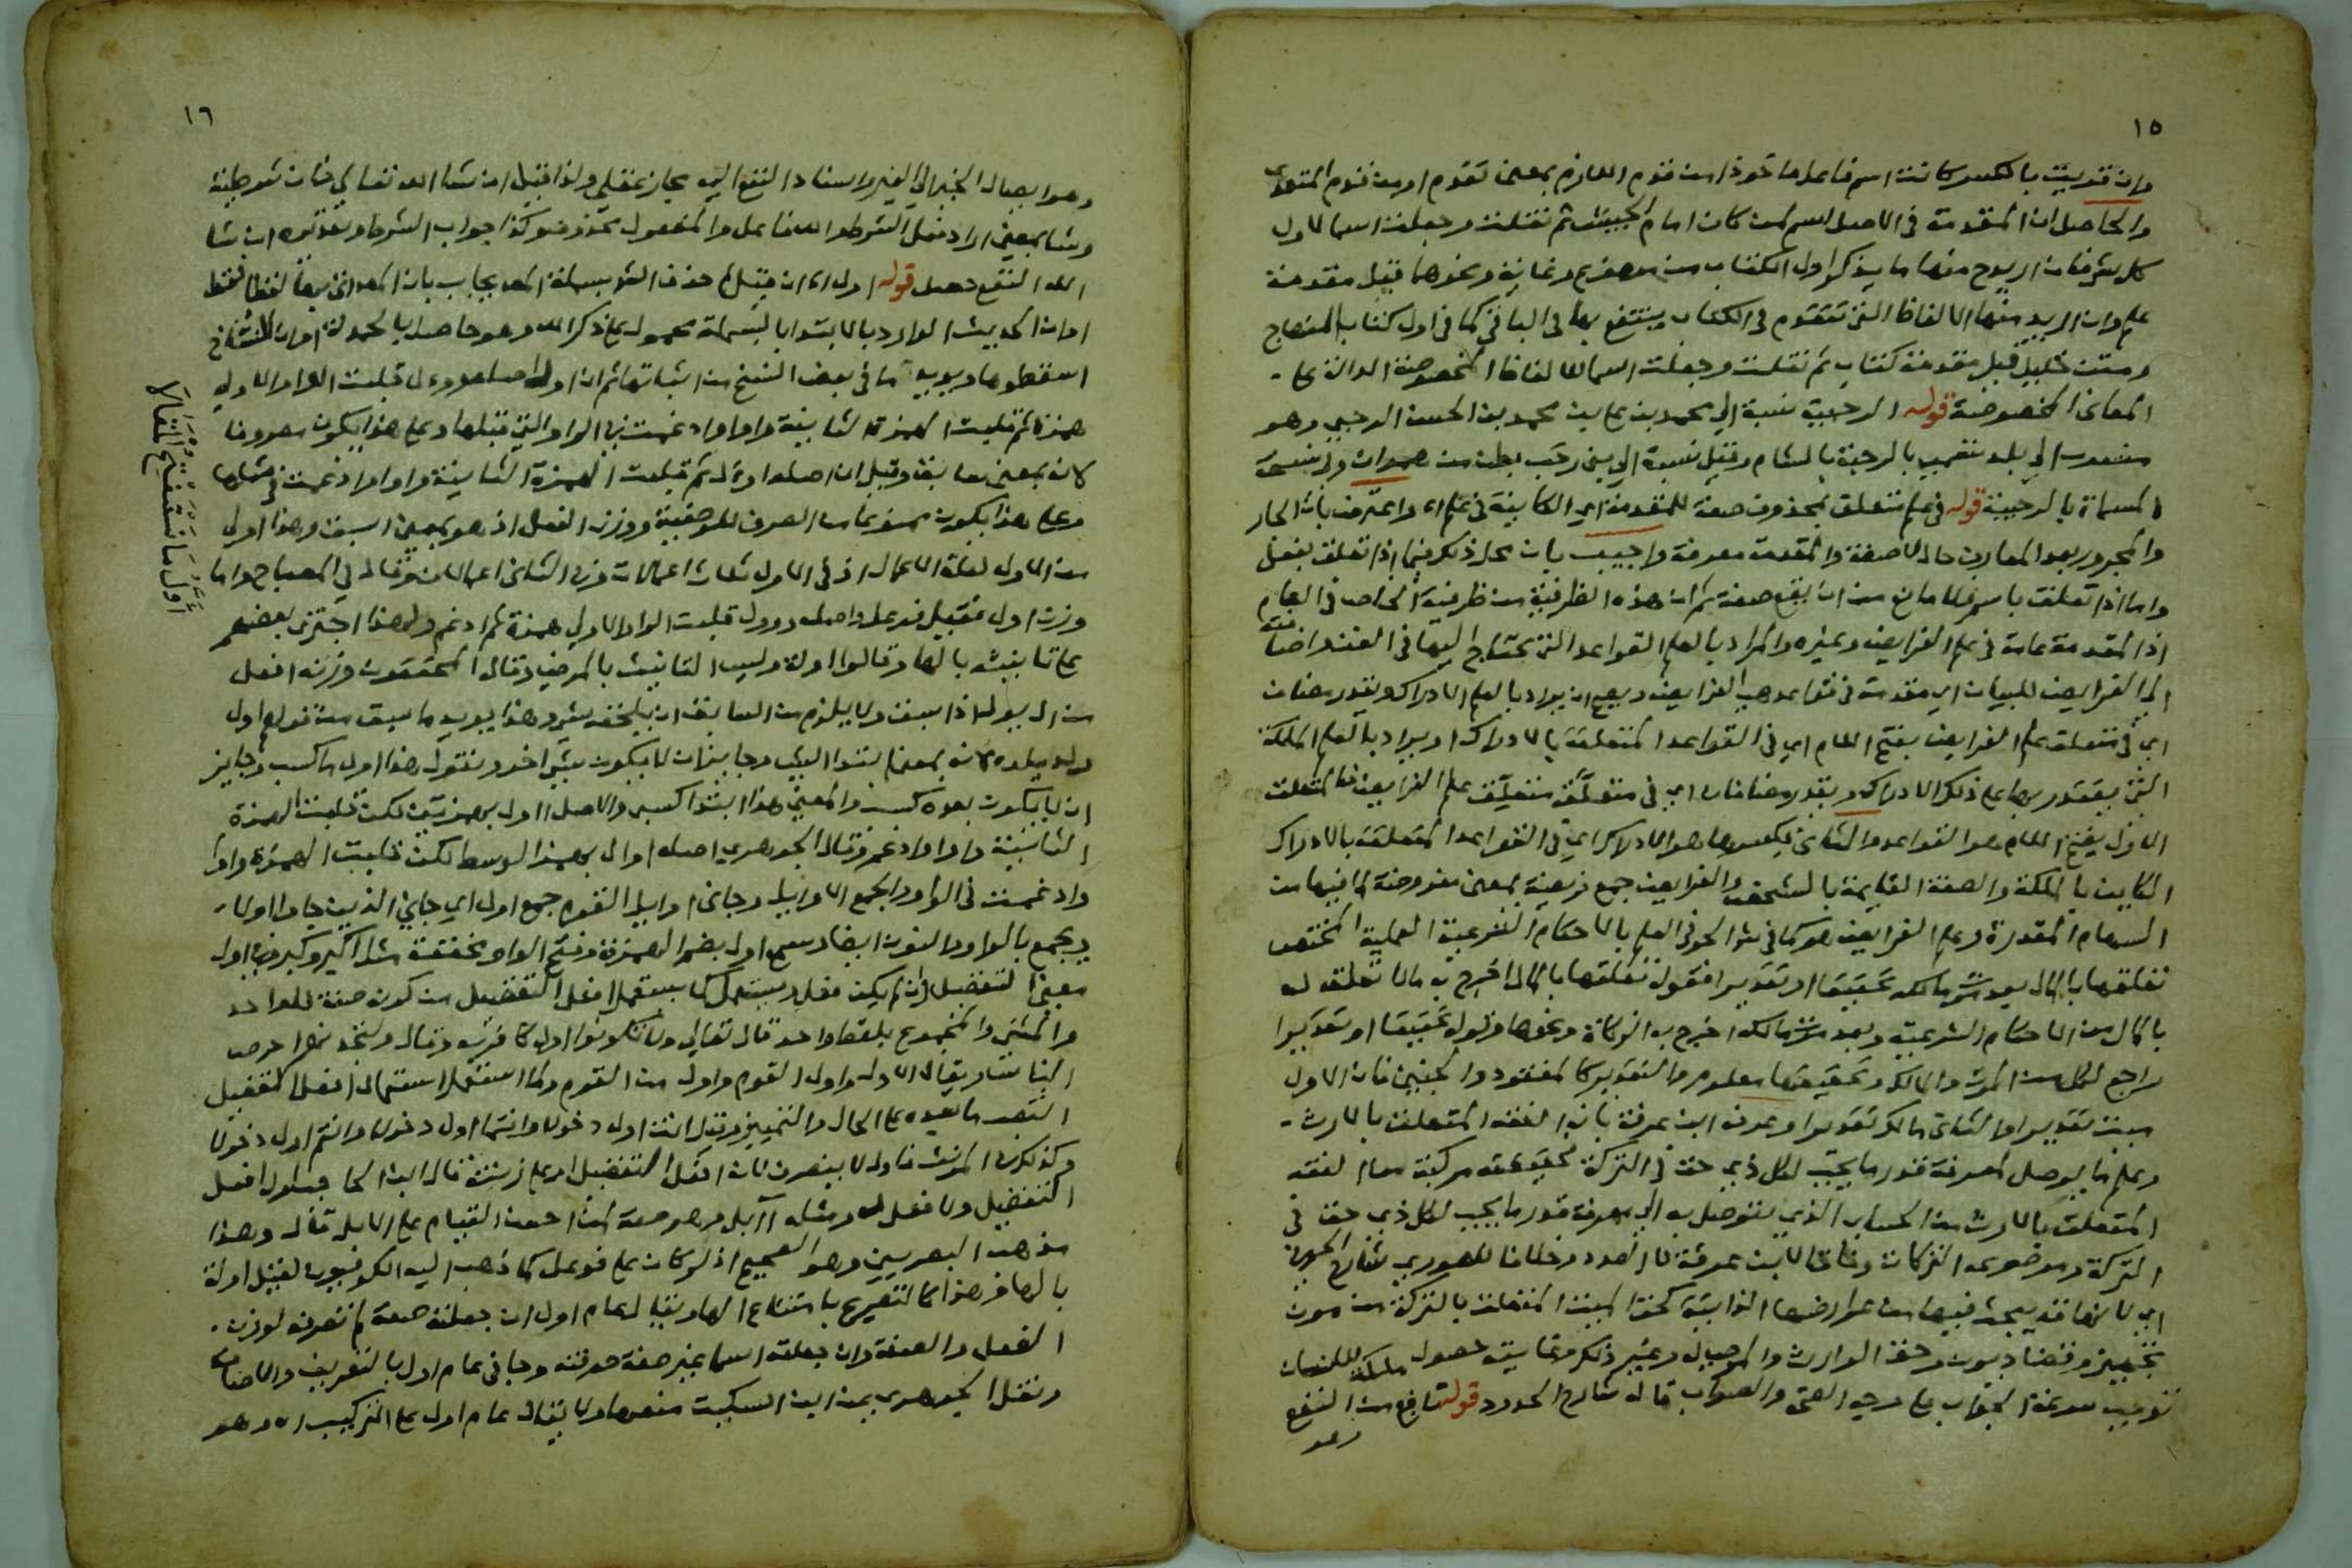 ١٥
وان قدرت بالكسر كانت اسم فاعل ماخوذا من قدم اللازم بمعنى تقدم او من قدم المتعدي
والحاصل ان المقدمة في الاصل اسم لمن كان امام الجيش ثم نقلت وجعلت اسما لاول
كل شي فان اريد منها ما يذكر اول الكتاب من وغاية ونحوها قيل مقدمة
علم وان اريد منها الالفاظ التي تتقدم في الكتاب وينتفع بها في الباقي كما في اول كتاب المنهاج
ومتن خليل قيل مقدمة كتاب ثم نقلت وجعلت اسما للالفاظ المخصوصة الدالة على
المعاني المخصوصة قوله الرحبية نسبة الى محمد بن علي بن محمد بن الحسن الرحبي وهو
منسوب الى بلد تسمى بالرحبة بالشام وقيل نسبة الى بني رحب بطن من همدان
المسماة بالرحبية قوله في علم متعلق بمحذوف صفة للمقدمة اي الكاينة في علم اه واعترض بان الجار
والمجرور بعد المعارف حال لا صفة والمقدمة معرفة واجيب بان محل ذلك فيما اذا تعلق بفعل
واما اذا تعلق باسم فلا مانع من ان يقع صفة ثم ان هذه الظرفية من ظرفية الخاص في العام
اذ المقدمة عامة في علم الفرايض وغيره والمراد بالعلم القواعد التي يحتاج اليها في الفن واضافة
الى الفرايض للبيان اي مقدمة في قواعد هي الفرايض ويصح ان يراد بالعلم الادراك ويقدر مضاف
اي في متعلق علم الفرايض بفتح اللام اي في القواعد المتعلقة بالادراك او يراد بالعلم الملكة
التي يقتدر بها على ذلك الادراك ويقدر مضافان اي في متعلق متعلق علم الفرايض فالمتعلق
الاول بفتح اللام هو القواعد والثاني بكسرها هو الادراك اي في القواعد المتعلقة بالادراك
الكاين بالملكة والصفة القايمة بالشخص والفرايض جمع فريضة بمعنى مفروضة لما فيها من
السهام المقدرة وعلم الفرايض هو كما في شرح الحوفي العلم بالاحكام الشرعية العملية المختص
تعلقها بالمال بعد موت مالكه تحقيقا او تقديرا فقوله تعلقها بالمال اخرج به مالا تعلق له
بالمال من الاحكام الشرعية وبعد موت مالكه اخرج به الزكاة ونحوها وقوله تحقيقا او تقديرا
راجع لكل من الموت والمالك وتحقيقها معلوم والتقدير كالمفقود والجنين فان الاول
ميت تقديرا والثاني مالك تقديرا وعرفه ابن عرفة بانه الفقه المتعلق بالارث
وعلم ما يوصل لمعرفة قدر ما يجب لكل ذي حق في التركة فحقيقته مركبة من الفقه
المتعلق بالارث من الحساب الذي يتوصل به الى معرفة قدر ما يجب لكل ذي حق في
التركة وموضوعه التركات وفاقا لابن عرفة لا العدد وخلافا للصوري
اي لانها قد يبحث فيها من عوارضها الذاتية كحق الميت المتعلق بالتركة من مون
تجهيز وقضا ديون وحق الوارث والموصى له وغير ذلك وغايته حصول ملكة للانسان
توجب سرعة الجواب على وجه الصحة والصواب قال شارح الحدود قوله نافع من النفع
وهو
١٦
وهو ايصال الخير الى الغير واسناد النفع اليه مجاز عقلي ولذا قيل ان شاء الله تعالى فان شرطية
وشا بمعنى اراد فعل الشرط والله فاعل والمفعول محذوف وكذا جواب الشرط وتقديره ان شا
الله النفع حصل قوله اول اه ان قيل لم حذف الشي بسملة اه يجاب بان اتى بها لفظا فقط
او ان الحديث الوارد بالابتدا بالبسملة محمول على ذكر الله وهو حاصل بالحمدلة او ان النساخ
اسقطوها ويويده ما في بعض النسخ من اثباتها ثم ان اول اصله وول قلبت الواو الاولى
همزة ثم قلبت الهمزة الثانية واوا وادغمت في الواو التي قبلها وعلى هذا يكون مصروفا
لانه بمعنى سابق وقيل ان اصله اوءل ثم قلبت الهمزة الثانية واوا وادغمت في مثلها
وعلى هذا يكون ممنوعا من الصرف للوصفية ووزن الفعل اذ هو بمعنى اسبق وهذا اولى
من الاول لقلة الاعمال اذ في الاول ثلاث اعمالات وفي الثاني اعمالان وقال في المصباح واما
وزن اول فقيل فوعل واصله وول قلبت الواو الاولى همزة ثم ادغم ولهذا اجترى بعضهم
على تانيثه بالها وقالوا اولة وليس التانيث بالمرضي وقال المحققون وزنه افعل
من ال يول اذا سبق ولا يلزم من السابق ان يلحقه شي وهذا يويد ما سبق من قولهم اول
ولد يلده لانه بمعنى ابتدا الشي وجايز ان لا يكون شي اخر وتقول هذا اول ما كسب وجايز
ان لا يكون بعده كسب والمعنى هذا ابتدا كسبي والاصل ااول بهمزتين لكن قلبت الهمزة
الثانية واوا وادغم وقال الجوهري اصله اوال بهمز الوسط لكن قلبت الهمزة واوا
وادغمت في الواو والجمع الاوايل وجا في اوايل القوم جمع اول اي جا في الذين جاوا اولا
ويجمع بالواو والنون ايضا وسمع اول بضم الهمزة وفتح الواو مخففة مثل اكبر وكبر وفي اول
معنى التفضيل وان لم يكن فعل ويستعمل كما يستعمل افعل التفضيل من كونه صفة للواحد
والمثنى والمجموع بلفظ واحد قال تعالى ولا تكونوا اول كافر به وقال ولتجدنهم احرص
الناس ويقال الاول واول القوم واول من القوم ولما استعمل استعمال افعل التفضيل
انتصب ما بعده على الحال والتمييز وقيل انت اول دخولا وانتما اول دخولا وانتم اول دخولا
وكذلك المونث فاول لا ينصرف لانه افعل التفضيل او على زنته قال ابن الحاجب اول افعل
التفضيل ولا فعل له ومثله آبل وهو صفة لمن احسن القيام على الابل قال وهذا
مذهب البصريين وهو الصحيح اذ لو كان على فوعل كما ذهب اليه الكوفيون لقيل اولة
بالها وهذا كالتصريح بامتناع الها ويقال عام اول ان جعلته صفة لم تصرفه لوزن
الفعل والصفة وان جعلته اسما غير صفة صرفته وجا في عام اول بالتعريف والاضافة
ونقل الجوهري عن ابن السكيت منعها ولا يقال عام اول على التركيب اه وهو
أول ما نستفتح المقالا